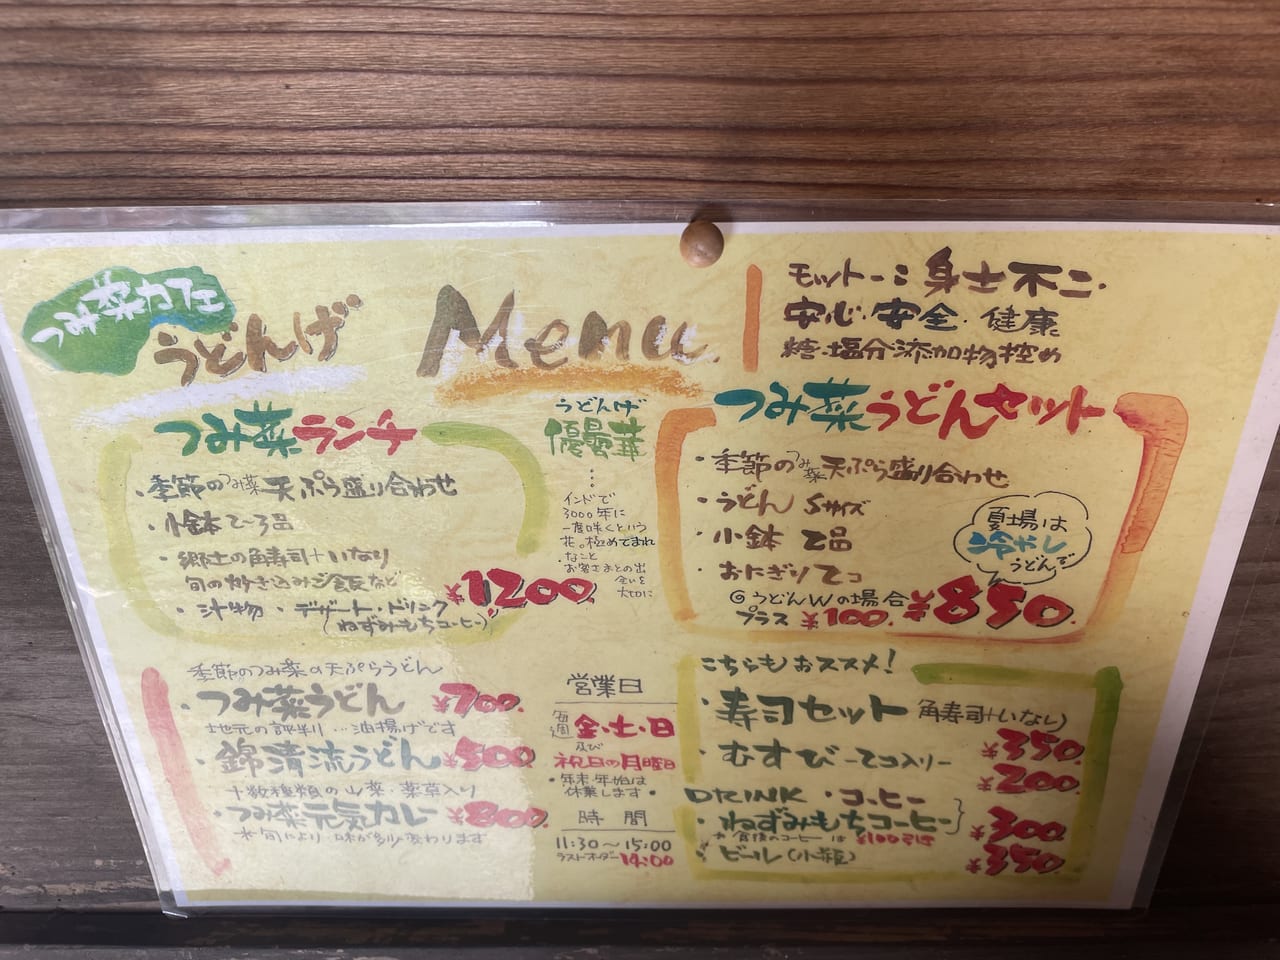 つみ菜カフェ
うどんげ
Menu
モットー：身土不二.
安心.安全.健康
糖.塩分添加物控め
つみ菜ランチ
・季節のつみ菜天ぷら盛り合わせ
・小鉢2〜3品
・郷土の角寿司+いなり
旬の炊き込みご飯など
・汁物・デザート・ドリンク
(ねずみもちコーヒー)
¥1200
うどんげ
優曇華
インドで
3000年に
一度咲くという
花。極めてまれ
なこと
・お客さまとの出
会いを
大切に
つみ菜うどんセット
・季節のつみ菜天ぷら盛り合わせ
・うどん Sサイズ
・小鉢 2品
・おにぎり2コ
◎うどんWの場合
プラス ¥100.
¥850.
夏場は
冷やし
うどんで
季節のつみ菜の天ぷらうどん
・つみ菜うどん ¥700.
地元の評判…油揚げです
・錦清流うどん ¥500
十数種類の山菜・薬草入り
・つみ菜元気カレー ¥800.
*旬により味が多少変わります
営業日
毎週 金・土・日
及び
祝日の月曜日
・年末年始は
休業します・
時間
11:30〜15:00
ラストオーダー14:00
こちらもおススメ!
・寿司セット 角寿司+いなし)
¥350.
・むすび ー2コ入リー
¥200
DRINK ・コーヒー
・ねずみもちコーヒー
¥300
*食後のコーヒーは ¥100引き
・ビール(小瓶)
¥350.